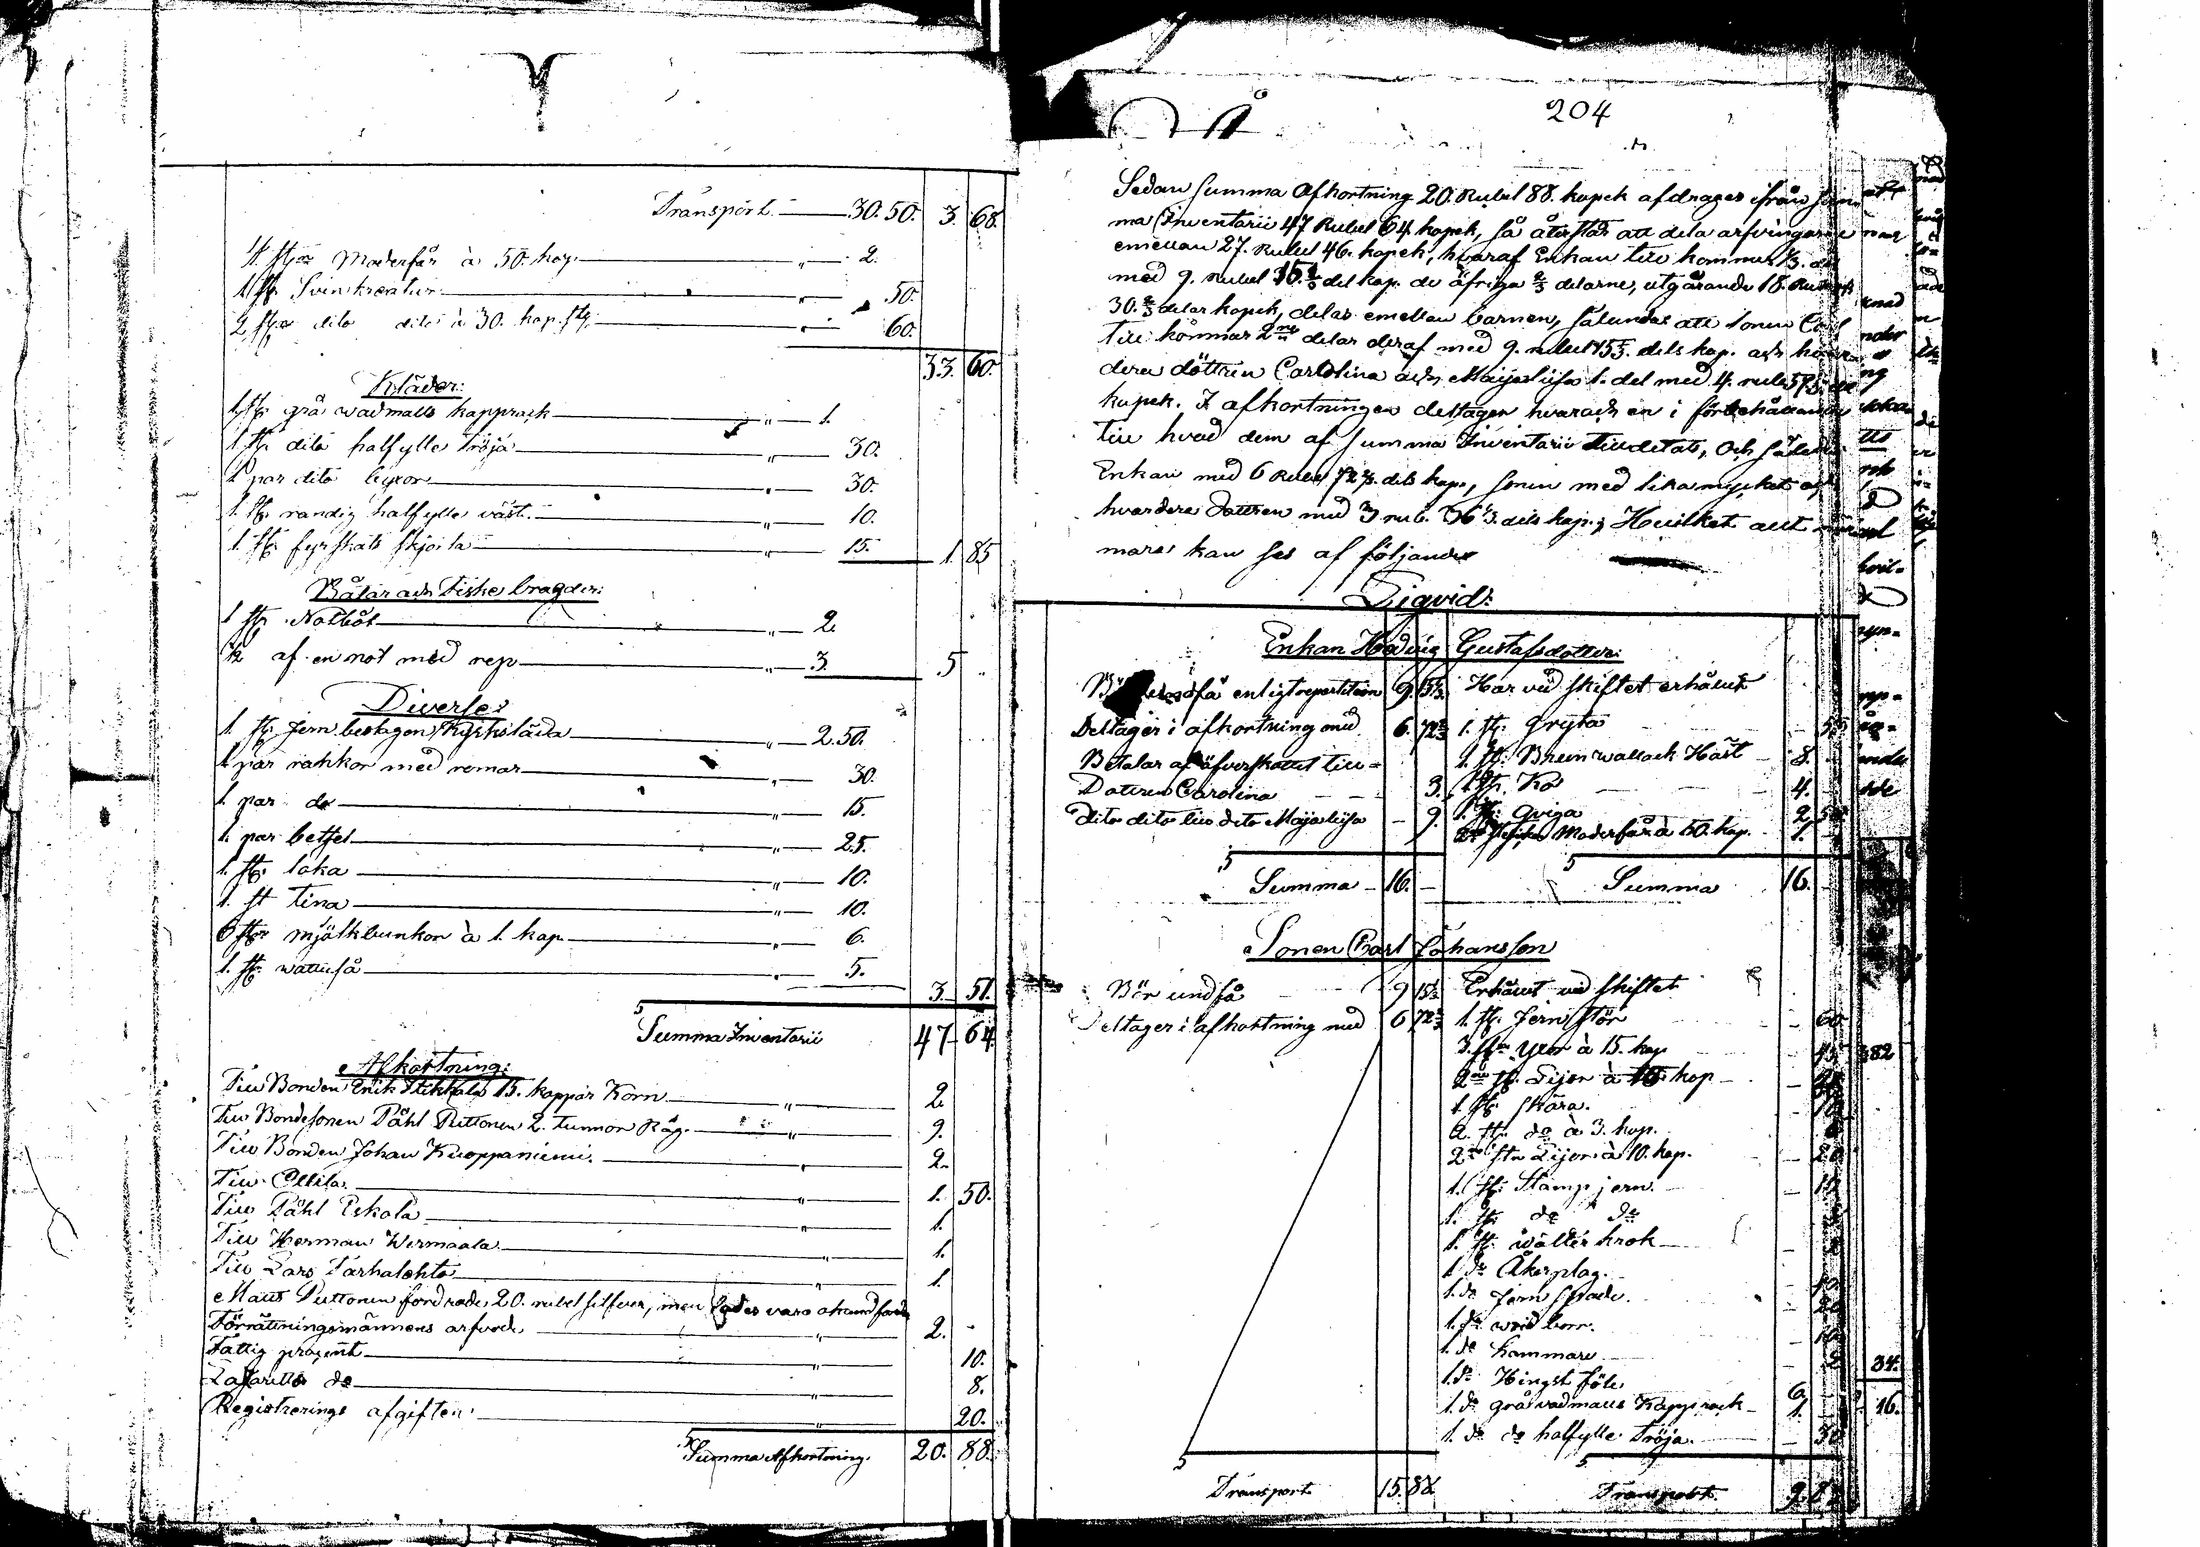 Transport. 30. 50. 3. 68.
4. st:r Moderfår à 50. kop. " 2.
1. st: Svinkreatur " 50.
2. st:r dito dito à 30. kop. st: " 60.
33. 60.
Kläder:
1. st: grå wadmalls kapprock " 1.
1 st: dito halfylle Tröja " 30.
1 par dito byxor " 30.
1. st: randig halfylle väst. " 10.
1. st: fyrskäts skjorta " 15. 1. 85
Båtar och Fiske bragder:
1 st: Notbåt " 2.
1/2 af en not med rep " 3. 5 "
Diverse:
1 st: Jern beslagen Kyrksläda " 2. 50.
1 par rahkor med remar " 30.
1. par do " 15.
1. par betsel " 25.
1. st: loka " 10.
1. st Tina " 10.
6 st:r mjölkbunkor à 1. kap. " 6.
1. st: wattuså " 5.
3. 51.
Summa Inventarii 47 64.
Afkortning:
Till Bonden Erik Stikkala 15. kappar Korn " 2.
Till Bondesonen Påhl Puttonen 2. tunnor Råg. " 9.
Till Bonden Johan Kuoppaniemi. " 2.
Till Ollila. " 1. 50.
Till Påhl Eskola " 1.
Till Herman Wirmaala " 1.
Till Lars Tarhalahto " 1.
Matts Puttonen fordrade 20. rubel silfver, men lades vara
Förrättningsmännens arfvode " 2. -
Fattig procent " 10.
Lazaretts do " 8.
Registrerings afgiften " 20.
Summa Afkortning. 20. 88.
204
Sedan summa Afkortning 20. Rubel 88. kopek afdrages ifrån Sum
ma Inventarii 47 Rubel 64 kopek, så återstår att dela arfvingarne
emellan 27. Rubel 46. kopek, hvaraf Enkan till kommer 1/3. del
med 9. rubel 15. 1/3 del kop. de öfriga 2/3 delarne, utgörande 18. Rubel
30. 2/3 delar kopek, delas emellan barnen, sålundas att sonen Carl
till kommer 2ne delar deraf med 9. rubel 15 1/3. dels kop. och hvar
dera döttren Carolina och Maija Liisa 1. del med 4. rubel
kopek. I afkortningen deltager hvar och en i förhållande
till hvad dem af summa Inventarii tilldelats, Och således
Enkan med 6 Rubel 72 2/3. dels kop., sonen med lika mycket och
hvardera Dottren med 3 rub. 36 1/3. dels kop.; Hvilket allt när
mare kan ses af följande
Liqvid:
Enkan Hedvig Gustafsdotter:
enligt repartition 9. 15 1/3. Har vid skiftet erhållit
Deltager i afkortning med 6. 72 2/3 1. st: Gryta 50
Betalar af öfverskottet till 1. st: Brun wallack Häst 8.
Dottren Carolina 3. 1 st: Ko 4.
dito dito till dito Maja Liisa 9. 1. st: Qviga 2. 50
Moderfår à 50. kop. 1.
Summa 16. - Summa 16. -
Sonen Carl Johansson
Bör undfå 9 15 1/3 Erhållit vid skiftet
Deltager i afkortning med 6 72 2/3 1. st: Jern stör 60.
3. st:r Yxor à 15. kop 45.
2ne st: Lijor à 15. kop
1. st: skära. 10
2. st: do à 3. kop. 6
2ne st:r Lijor à 10. kop. 20
1. st: Stamp jern. 15
1. st: do do
1. st: wälter krok
1. do Åkerplog. 10
1. do Jern spade. 20
1. do wrid borr.
1. do hammare
1. do Hingst föle 6.
1. do grå vadmalls Kapprock 1.
1. do do halfylle Tröja. 30
Transport 15. 88. Transport. 9.
382
34.
16.